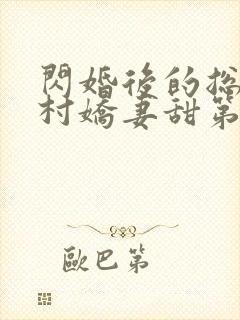 閃婚後的総
村嬌妻甜第
歐巴第